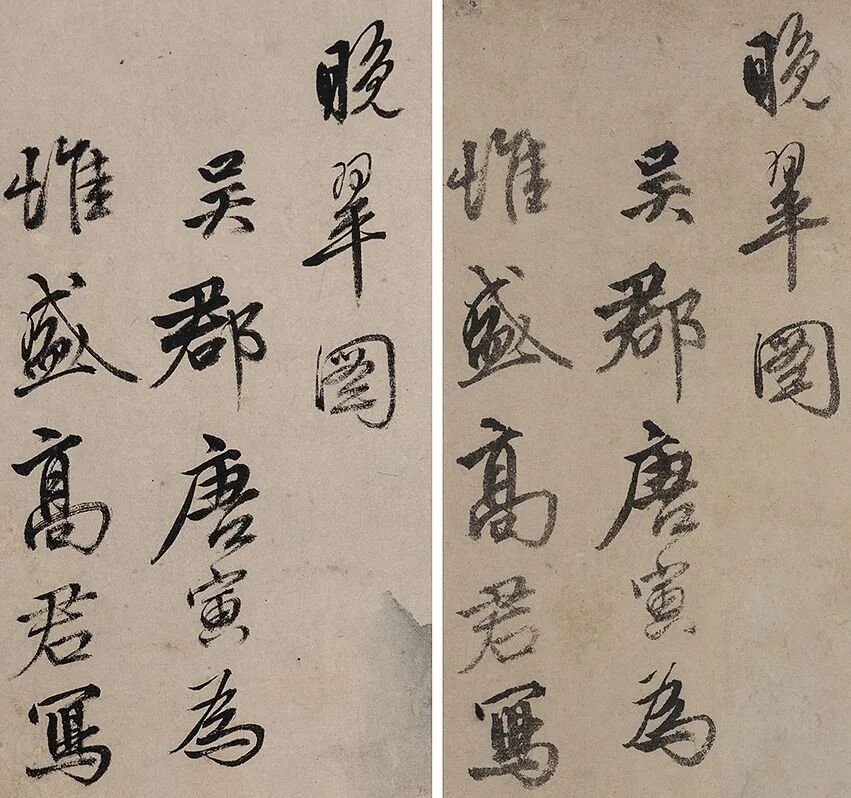 晚翠圖
吳郡唐寅為
惟盛高君寫
晚翠圖
吳郡唐寅為
惟盛高君寫